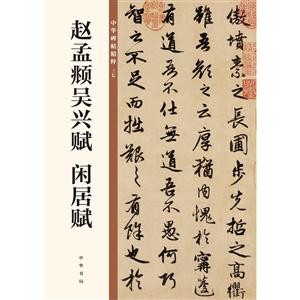 赵孟頫吴兴赋 闲居赋
中华碑帖精粹
中华书局
傲墳素之長圃步先哲之高衢
雖吾顏之云厚猶内愧於寗蘧
有道吾不仕無道吾不愚何巧
智之不足而拙艱之有餘也於